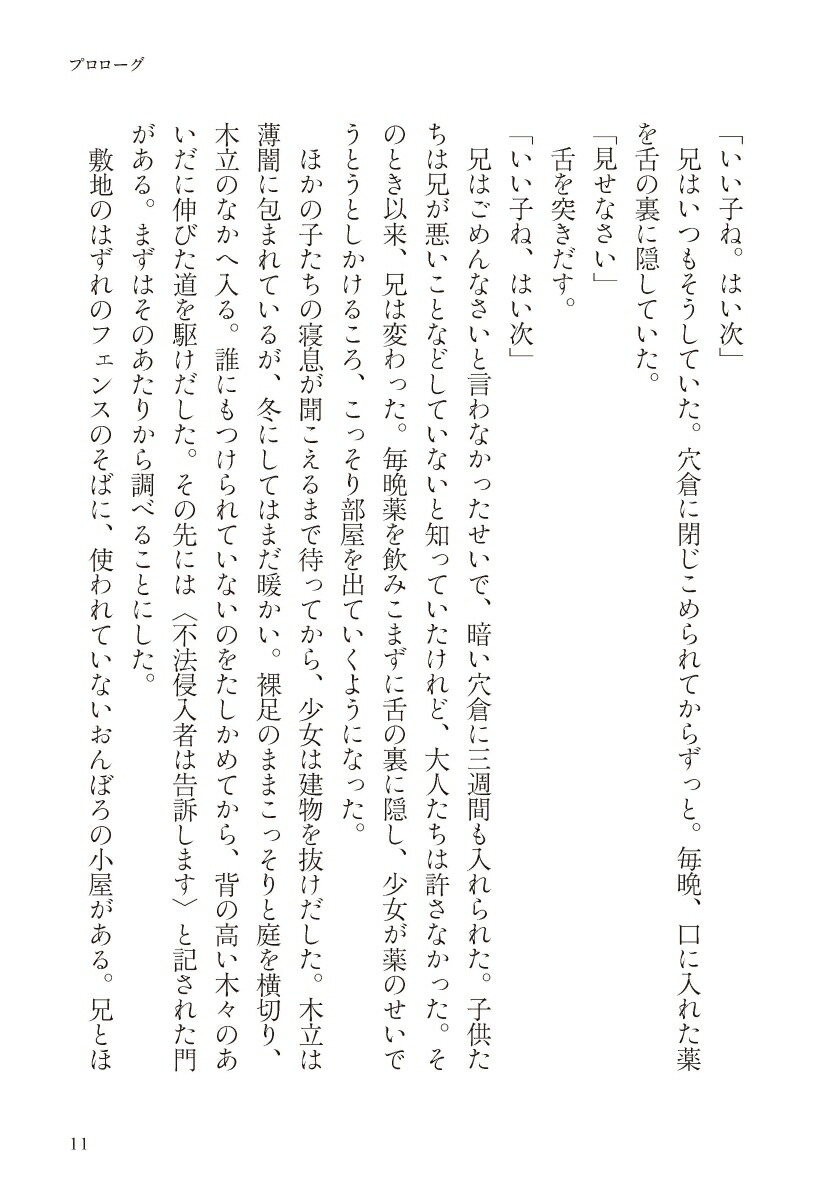 プロローグ
「いい子ね。はい次」
兄はいつもそうしていた。穴倉に閉じこめられてからずっと。毎晩、口に入れた薬
を舌の裏に隠していた。
「見せなさい」
舌を突きだす。
「いい子ね、はい次」
兄はごめんなさいと言わなかったせいで、暗い穴倉に三週間も入れられた。子供た
ちは兄が悪いことなどしていないと知っていたけれど、大人たちは許さなかった。そ
のとき以来、兄は変わった。毎晩薬を飲みこまずに舌の裏に隠し、少女が薬のせいで
うとうとしかけるころ、こっそり部屋を出ていくようになった。
ほかの子たちの寝息が聞こえるまで待ってから、少女は建物を抜けだした。木立は
薄闇に包まれているが、冬にしてはまだ暖かい。裸足のままこっそりと庭を横切り、
木立のなかへ入る。誰にもつけられていないのをたしかめてから、背の高い木々のあ
いだに伸びた道を駆けだした。その先には〈不法侵入者は告訴します〉と記された門
がある。まずはそのあたりから調べることにした。
敷地のはずれのフェンスのそばに、使われていないおんぼろの小屋がある。兄とほ
11